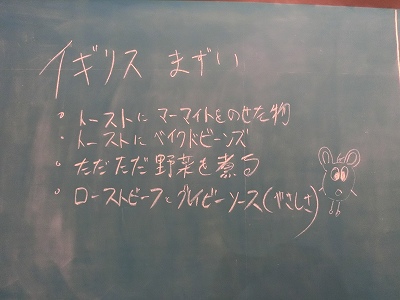 イギリス まずい
・トーストにマーマイトをのせた物
・トーストにベイクドビーンズ
・ただただ野菜を煮る
・ローストビーフとグレイビーソース(やさしさ)